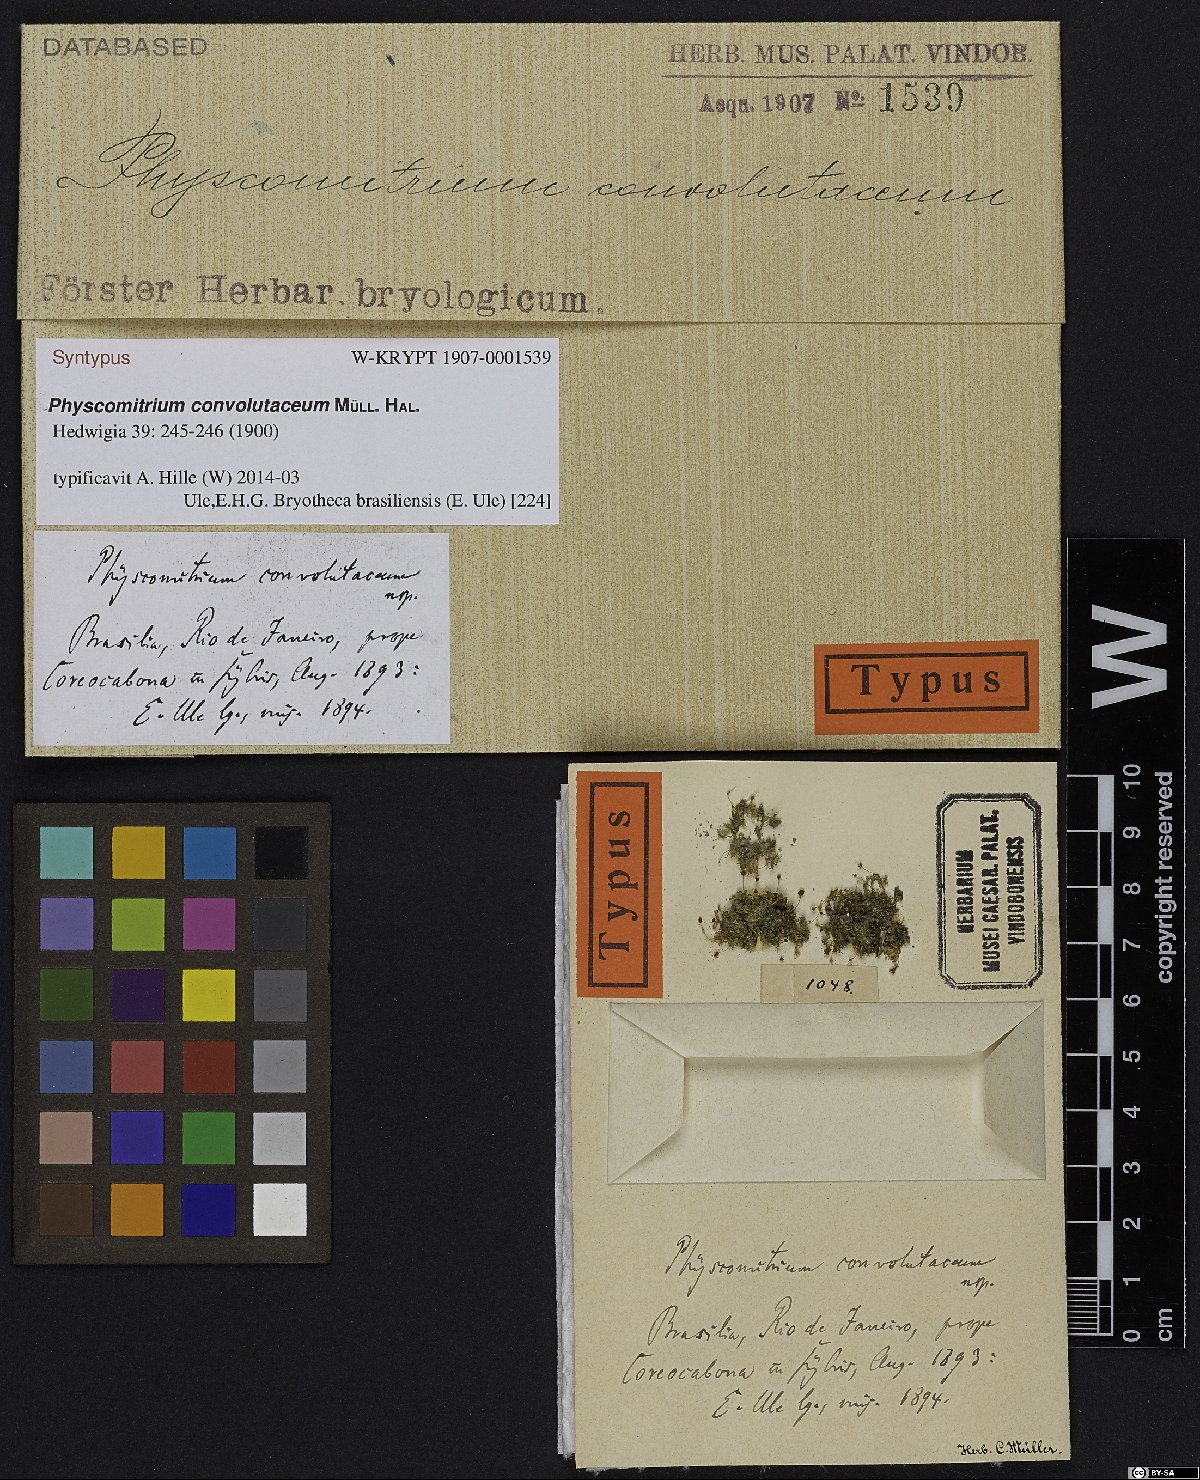 DATABASED
HERB. MUS. PALAT. VINDOB.
Asqu. 1907 No. 1539
Physcomitrium convolutaceum
Förster Herbar. bryologicum.
Syntypus W-KRYPT 1907-0001539
Physcomitrium convolutaceum MÜLL. HAL.
Hedwigia 39: 245-246 (1900)
typificavit A. Hille (W) 2014-03
Ule,E.H.G. Bryotheca brasiliensis (E. Ule) [224]
Physcomitrium convolutaceum
nsp.
Brasilia, Rio de Janeiro, prope
Coreocabona in sylvis, Aug. 1893:
E. Ule lg., 1894.
Typus
Typus
HERBARIUM
MUSEI CAESAR. PALAT.
VINDOBONENSIS
1048.
Physcomitrium convolutaceum
nsp.
Brasilia, Rio de Janeiro, prope
Coreocabona in sylvis, Aug. 1893:
E. Ule lg., 1894.
Herb. C. Müller.
W
0 1 2 3 4 5 6 7 8 9 10
cm
copyright reserved
cc BY-SA